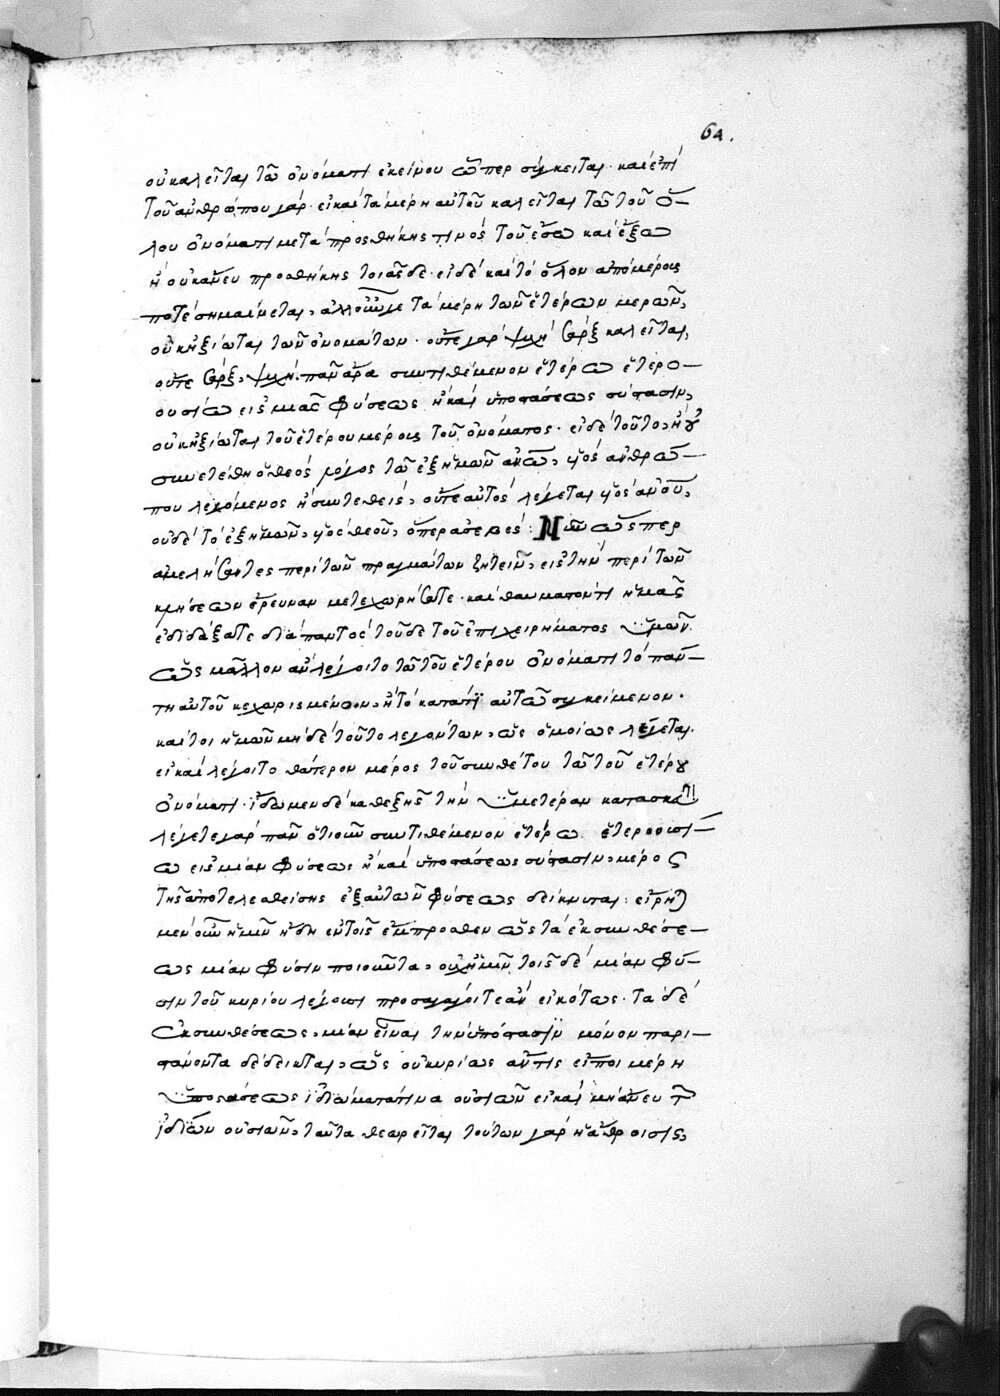 64.
οὐ καλεῖται τῶ ὀνόματι ἐκείνου ὧπερ σύγκειται· καὶ ἐπὶ
τοῦ ἀνθρώπου γάρ· εἰ καὶ τὰ μέρη αὐτοῦ καλεῖται τῶ τοῦ ὅ-
λου ὀνόματι μετὰ προσθήκης τινὸς τοῦ ἔσω καὶ ἔξω
ἢ οὐκ ἄνευ προσθήκης τοιᾶσδε· εἰ δὲ καὶ τὸ ὅλον ἀπὸ μέρους
ποτὲ σημαίνεται, ἀλλ' οὖν γε τὰ μέρη τῶν ἑτέρων μερῶν,
οὐκ ἠξίωται τῶν ὀνομάτων· οὔτε γὰρ ψυχὴ σὰρξ καλεῖται,
οὔτε σὰρξ, ψυχή. πᾶν ἄρα συντιθέμενον ἑτέρω ἑτερο-
ουσίω εἰς μιᾶς φύσεως ἢ καὶ ὑποστάσεως σύστασιν,
οὐκ ἠξίωται τοῦ ἑτέρου μέρους τοῦ ὀνόματος· εἰ δὲ τοῦτο,
συνετέθη ὁ θεὸς λόγος τῶ ἐξ ἡμῶν ἀνω, υἱὸς ἀνθρώ-
που λεγόμενος ἢ συντεθεὶς, οὔτε αὐτὸς λέγεται υἱὸς ἀνου,
οὐδὲ τὸ ἐξ ἡμῶν, υἱὸς θεοῦ, ὅπερ ἀσεβές: Νῦν ὥσπερ
ἀμελήσαντες περὶ τῶν πραγμάτων ζητεῖν, εἰς τὴν περὶ τῶν
κλήσεων ἔρευναν μετεχωρήσατε· καὶ θαυμαστὸν τί ἡμᾶς
ἐδιδάξατε διὰ παντὸς τοῦδε τοῦ ἐπιχειρήματος ὑμῶν.
ὡς μᾶλλον ἂν λέγοιτο τῶ τοῦ ἑτέρου ὀνόματι τὸ πάν-
τη αὐτοῦ κεχωρισμένον, ἢ τὸ κατάτι αὐτῶ συγκείμενον.
καίτοι ἡμῶν μηδὲ τοῦτο λεγόντων, ὡς ὁμοίως λέγεται.
εἰ καὶ λέγοιτο θάτερον μέρος τοῦ συνθέτου τῶ τοῦ ἑτέρου
ὀνόματι· ἴδωμεν δὲ καθεξῆς τὴν ὑμετέραν κατασκευὴν
λέγετε γὰρ πᾶν ὁτιοῦν συντιθέμενον ἑτέρω ἑτεροουσί-
ω εἰς μίαν φύσεως ἢ καὶ ὑποστάσεως σύστασιν, μέρος
τῆς ἀποτελεσθείσης ἐξ αὐτῶν φύσεως δείκνυται: εἴρη
μεν οὖν ἡμῖν ἤδη ἐν τοῖς ἔμπροσθεν ὡς τὰ ἐκ συνθέσε-
ως μίαν φύσιν ποιοῦντα, οὐχ ἡμῖν τοῖς δὲ μίαν φύ-
σιν τοῦ κυρίου λέγουσι προσαγάγοιτε ἂν εἰκότως· τὰ δὲ
ἐκ συνθέσεως, μίαν εἶναι τὴν ὑπόστασιν μόνον παρι-
στάνοντα δέδεικται, ὡς οὐ κυρίως ἄν τις εἴποι μέρη
ὑποστάσεως ἰδιώματά τινα οὐσιῶν εἰ καὶ μὴ ἄνευ τῶν
ἰδίων οὐσιῶν, ταῦτα θεωρεῖται τούτων γὰρ ἡ ἄθροισις,